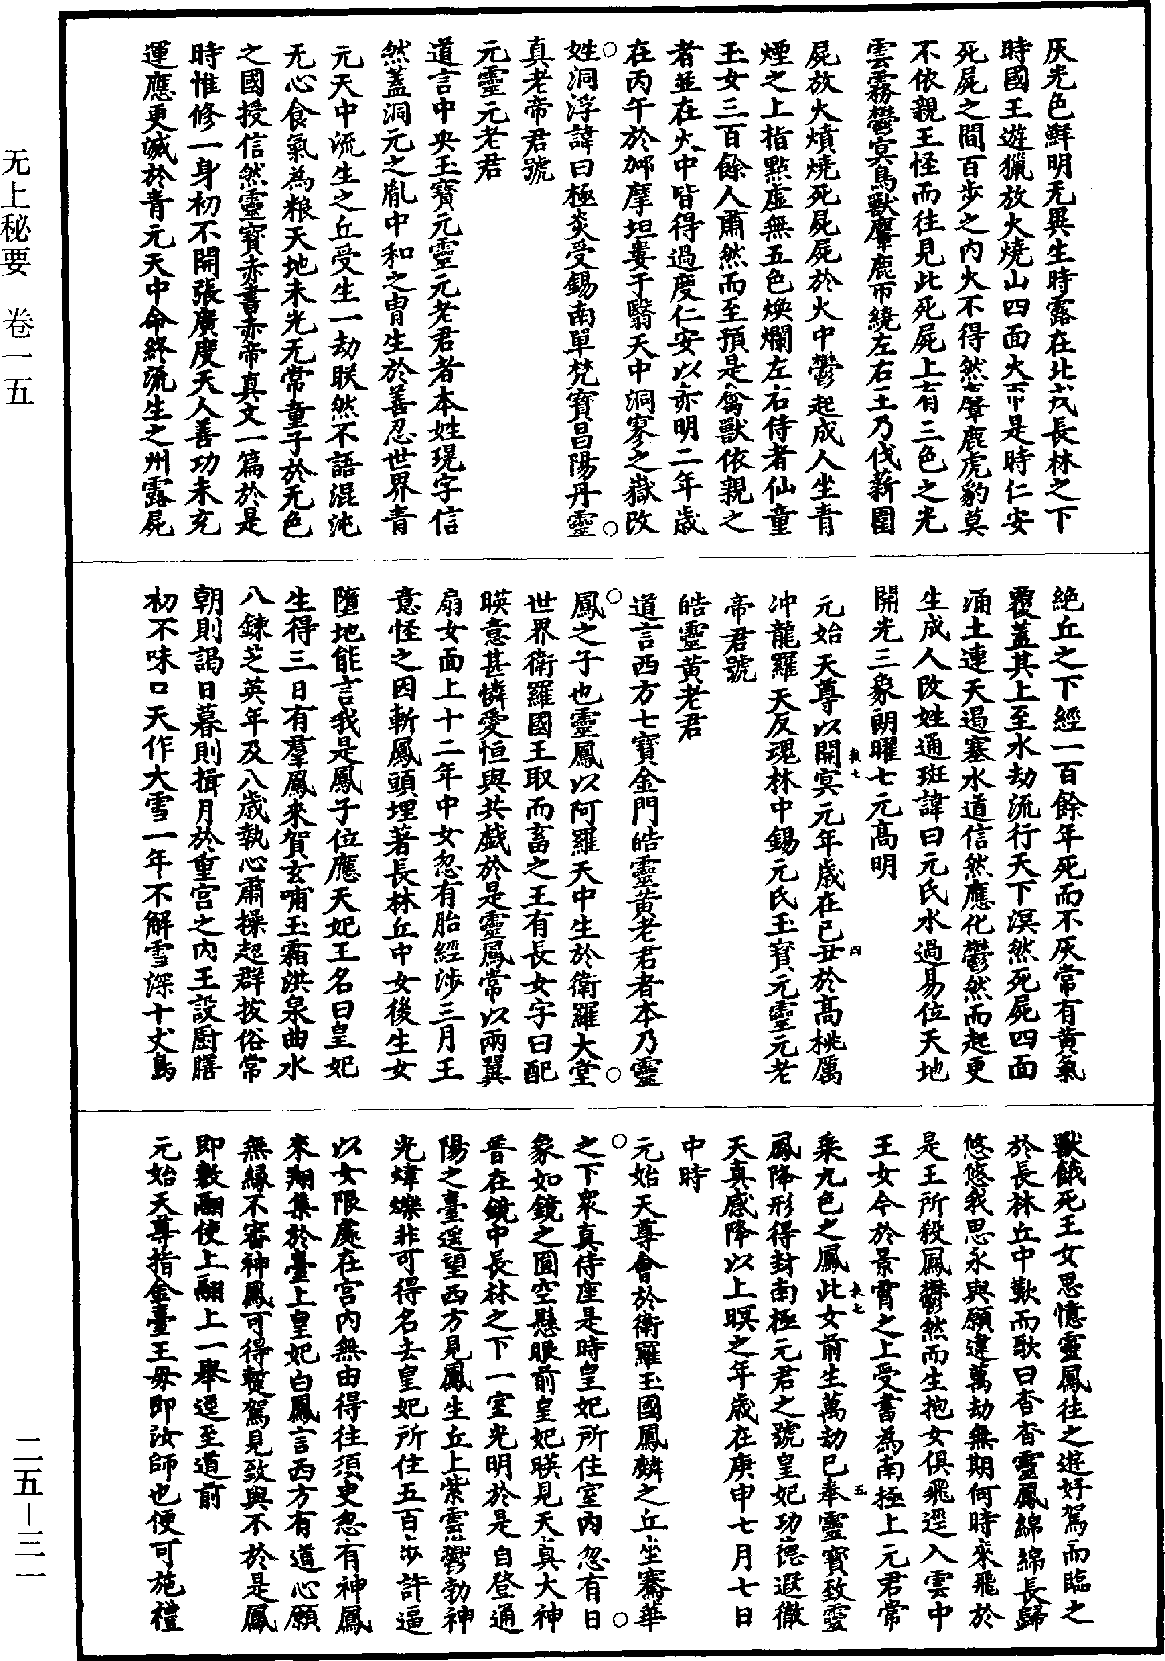 灰光色鮮明无異生時露在北戎長林之下
時國王遊獵放火燒山四面火帀是時仁安
死屍之間百步之內火不得然麞鹿虎豹莫
不依親王怪而往見此死屍上有三色之光
雲霧鬱冥鳥獸麞鹿帀繞左右王乃伐薪圍
屍放火燌燒死屍屍於火中鬱起成人坐青
煙之上指點虛無五色煥爛左右侍者仙童
玉女三百餘人肅然而至預是禽獸依親之
者並在火中皆得過度仁安以赤明二年歲
在丙午於郍摩坦婁于翳天中洞寥之嶽改
姓洞浮諱曰極炎受錫南單梵寶昌陽丹靈
真老帝君號
元靈元老君
道言中央玉寶元靈元老君者本姓琨字信
然蓋洞元之胤中和之胄生於善忍世界青
元天中流生之丘受生一劫眹然不語混沌
无心食氣為粮天地未光无常童子於无色
之國授信然靈寶赤書赤帝真文一篇於是
時惟修一身初不開張廣度天人善功未充
運應更滅於青元天中命終流生之州露屍
絶丘之下經一百餘年死而不灰常有黃氣
覆蓋其上至水劫流行天下溟然死屍四面
涌土連天遏塞水道信然應化鬱然而起更
生成人改姓通班諱曰元氏水過易位天地
開光三象朗曜七元高明
元始天尊以開㝠元年歲在己丑於高桃厲
冲龍羅天反魂林中錫元氏玉寶元靈元老
帝君號
皓靈黃老君
道言西方七寶金門皓靈黃老君者本乃靈
鳳之子也靈鳳以阿羅天中生於衛羅大堂
世界衛羅國王取而畜之王有長女字曰配
暎意甚憐愛恒與共戲於是靈鳳常以兩翼
扇女面上十二年中女忽有胎經涉三月王
意怪之因斬鳳頭埋著長林丘中女後生女
墮地能言我是鳳子位應天妃王名曰皇妃
生得三日有羣鳳來賀玄哺玉霜洪泉曲水
八鍊芝英年及八歲執心肅操超群拔俗常
朝則謁日暮則揖月於重宮之內王設厨膳
初不味口天作大雪一年不解雪深十丈鳥
獸餓死王女思憶靈鳳往之遊好駕而臨之
於長林丘中歎而歌曰杳杳靈鳳綿綿長歸
悠悠我思永與願違萬劫無期何時來飛於
是王所殺鳳鬱然而生抱女俱飛逕入雲中
王女今於景霄之上受書為南極上元君常
乘九色之鳳此女前生萬劫已奉靈寶致靈
鳳降形得封南極元君之號皇妃功德遐徹
天真感降以上暝之年歲在庚申七月七日
中時
元始天尊會於衛羅玉國鳳麟之丘坐騫華
之下衆真侍座是時皇妃所住室內忽有日
象如鏡之圓空懸眼前皇妃暎見天真大神
普在鏡中長林之下一室光明於是自登通
陽之臺遥望西方見鳳生丘上紫雲鬱勃神
光煒爍非可得名去皇妃所住五百步許逼
以女限處在宮內無由得往須臾忽有神鳳
來翔集於臺上皇妃白鳳言西方有道心願
無緣不審神鳳可得蹔駕見致與不於是鳳
即敷翮使上翮上一舉逕至道前
元始天尊指金臺王毋即汝師也便可施禮
无上秘要　卷一五
二五－三一